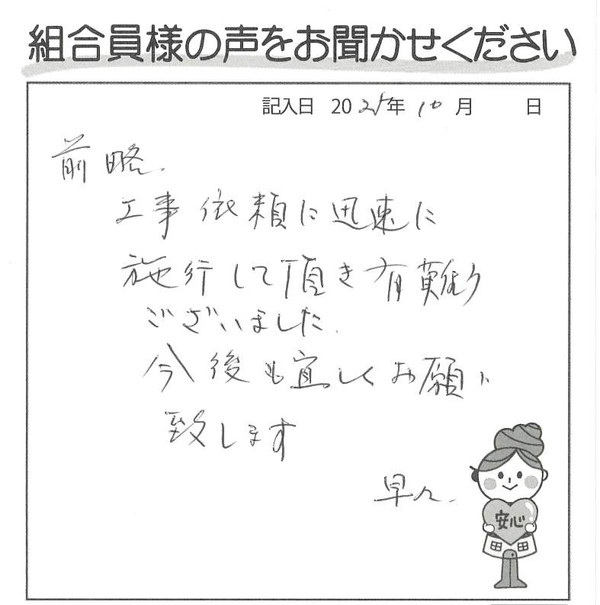 組合員様の声をお聞かせください
記入日 2025年 10月 日
前略.
工事依頼に迅速に
施行して頂き有難う
ございました.
今後も宜しくお願い
致します
早々.
安心